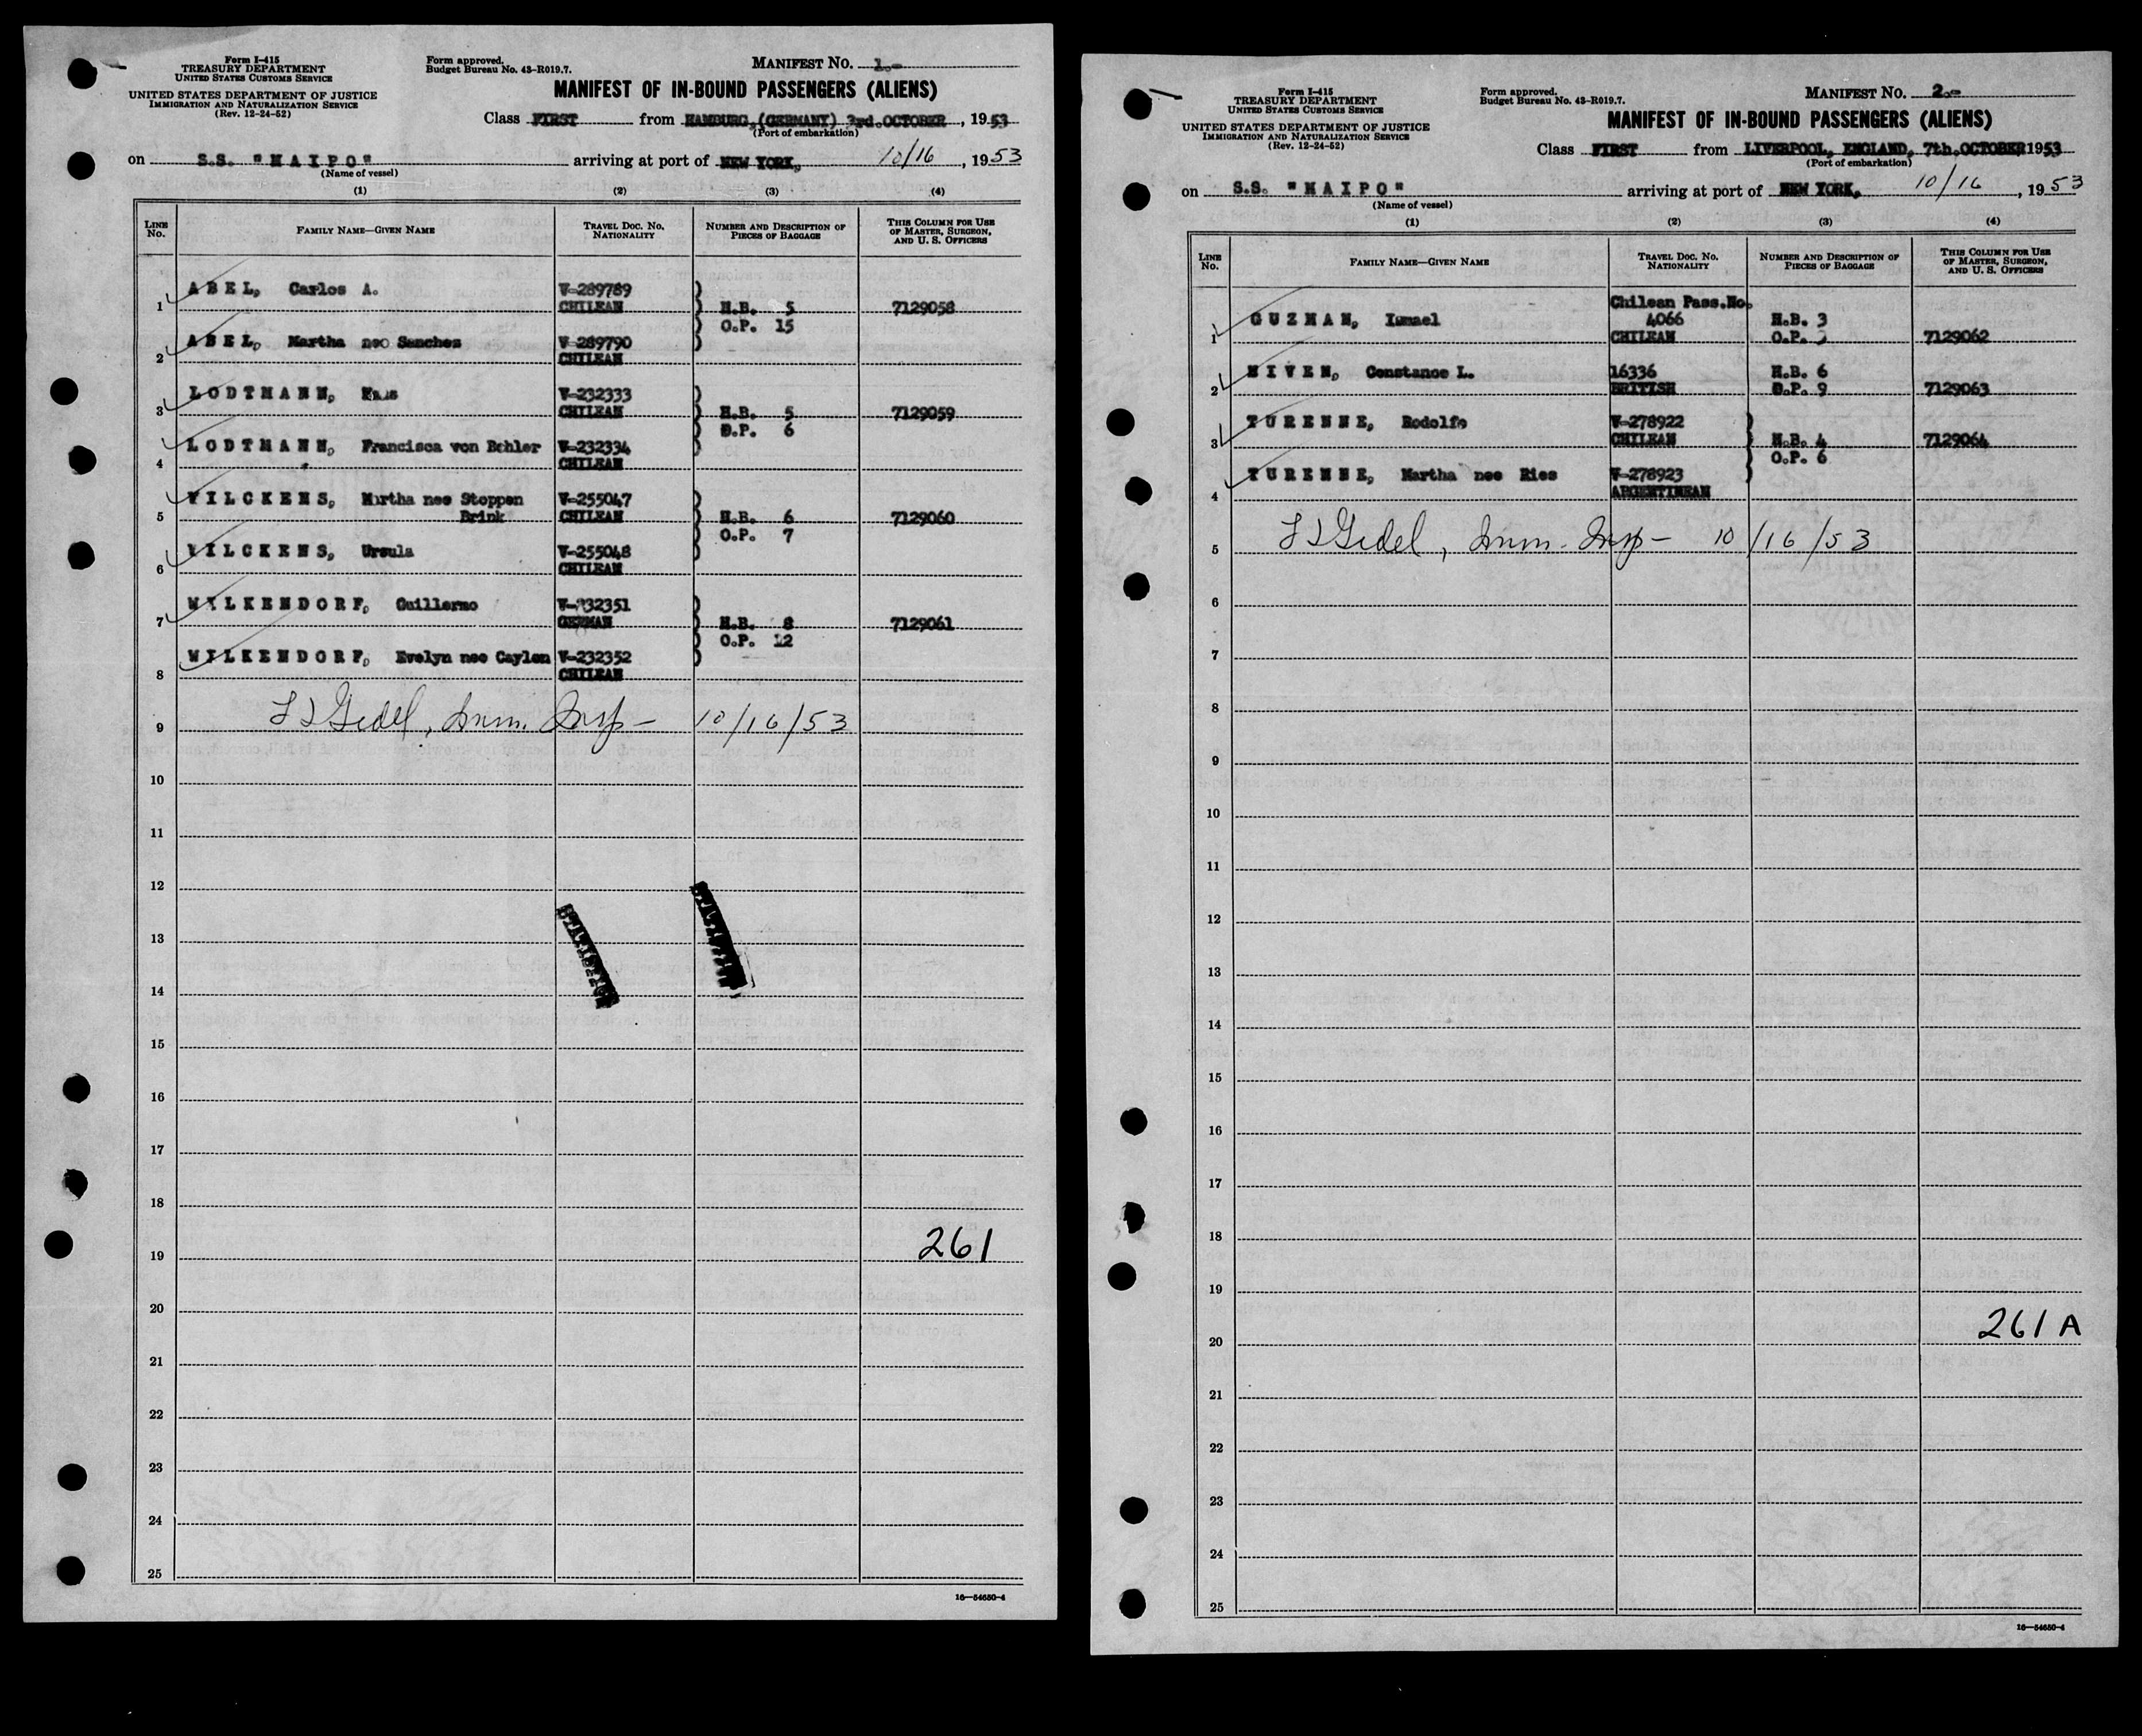 Form I-415
TREASURY DEPARTMENT
UNITED STATES CUSTOMS SERVICE
UNITED STATES DEPARTMENT OF JUSTICE
IMMIGRATION AND NATURALIZATION SERVICE
(Rev. 12-24-52)
Form approved.
Budget Bureau No. 43-R019.7.
MANIFEST NO. 1.-
MANIFEST OF IN-BOUND PASSENGERS (ALIENS)
Class FIRST from HAMBURG, (GERMANY) 3rd. OCTOBER, 1953
(Port of embarkation)
on S.S. "MAIPO" arriving at port of NEW YORK, 10/16, 1953
(Name of vessel)
(1) (2) (3) (4)
LINE NO. FAMILY NAME—GIVEN NAME TRAVEL DOC. NO. NATIONALITY NUMBER AND DESCRIPTION OF PIECES OF BAGGAGE THIS COLUMN FOR USE OF MASTER, SURGEON, AND U. S. OFFICERS
1 ABEL, Carlos A. V-289789 CHILEAN H.B. 5 O.P. 15 7129058
2 ABEL, Martha nee Sanchez V-289790 CHILEAN
3 LODTMANN, Hans V-232333 CHILEAN H.B. 5 O.P. 6 7129059
4 LODTMANN, Francisca von Bohler V-232334 CHILEAN
5 WILCKENS, Martha nee Stoppen Brink V-255047 CHILEAN H.B. 6 O.P. 7 7129060
6 WILCKENS, Ursula V-255048 CHILEAN
7 WILKENDORF, Guillermo V-232351 GERMAN H.B. 8 O.P. 12 7129061
8 WILKENDORF, Evelyn nee Caylen V-232352 CHILEAN
9 Gedel, Imm. Insp- 10/16/53
10
11
12
13
14
15
16
17
18
19 261
20
21
22
23
24
25
16—54650-4
Form I-415
TREASURY DEPARTMENT
UNITED STATES CUSTOMS SERVICE
UNITED STATES DEPARTMENT OF JUSTICE
IMMIGRATION AND NATURALIZATION SERVICE
(Rev. 12-24-52)
Form approved.
Budget Bureau No. 43-R019.7.
MANIFEST NO. 2.-
MANIFEST OF IN-BOUND PASSENGERS (ALIENS)
Class FIRST from LIVERPOOL, ENGLAND, 7th. OCTOBER 1953
(Port of embarkation)
on S.S. "MAIPO" arriving at port of NEW YORK, 10/16, 1953
(Name of vessel)
(1) (2) (3) (4)
LINE NO. FAMILY NAME—GIVEN NAME TRAVEL DOC. NO. NATIONALITY NUMBER AND DESCRIPTION OF PIECES OF BAGGAGE THIS COLUMN FOR USE OF MASTER, SURGEON, AND U. S. OFFICERS
1 GUZMAN, Ismael Chilean Pass.No. 4066 CHILEAN H.B. 3 O.P. 7129062
2 NIVEN, Constance L. 16336 BRITISH H.B. 6 O.P. 9 7129063
3 TURENNE, Rodolfo V-278922 CHILEAN H.B. 4 O.P. 6 7129064
4 TURENNE, Martha nee Ries V-278923 ARGENTINEAN
5 Gedel, Imm. Insp- 10/16/53
6
7
8
9
10
11
12
13
14
15
16
17
18
19
20 261 A
21
22
23
24
25
16—54650-4